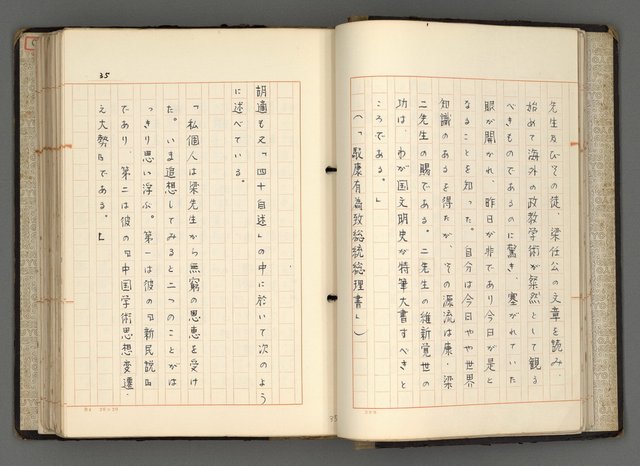 先生及びその徒、梁任公の文章を読み、
始めて海外の政教学術が粲然として観る
べきものであるのに驚き、塞がれていた
眼が開かれ、昨日が非であり今日が是と
なることを知った。自分は今日やや世界
知識のあるを得たが、その源流は康・梁
二先生の賜である。二先生の維新覚世の
功は、わが国文明史が特筆大書すべきと
ころである。」
(「駁康有為致総統総理書」)
35
胡適も又「四十自述」の中に於いて次のよう
に述べている。
「私個人は梁先生から無窮の恩恵を受け
た。いま追想してみると二つのことがは
っきり思い浮ぶ。第一は彼の『新民説』
であり、第二は彼の『中国学術思想変遷
之大勢』である。」
20×20